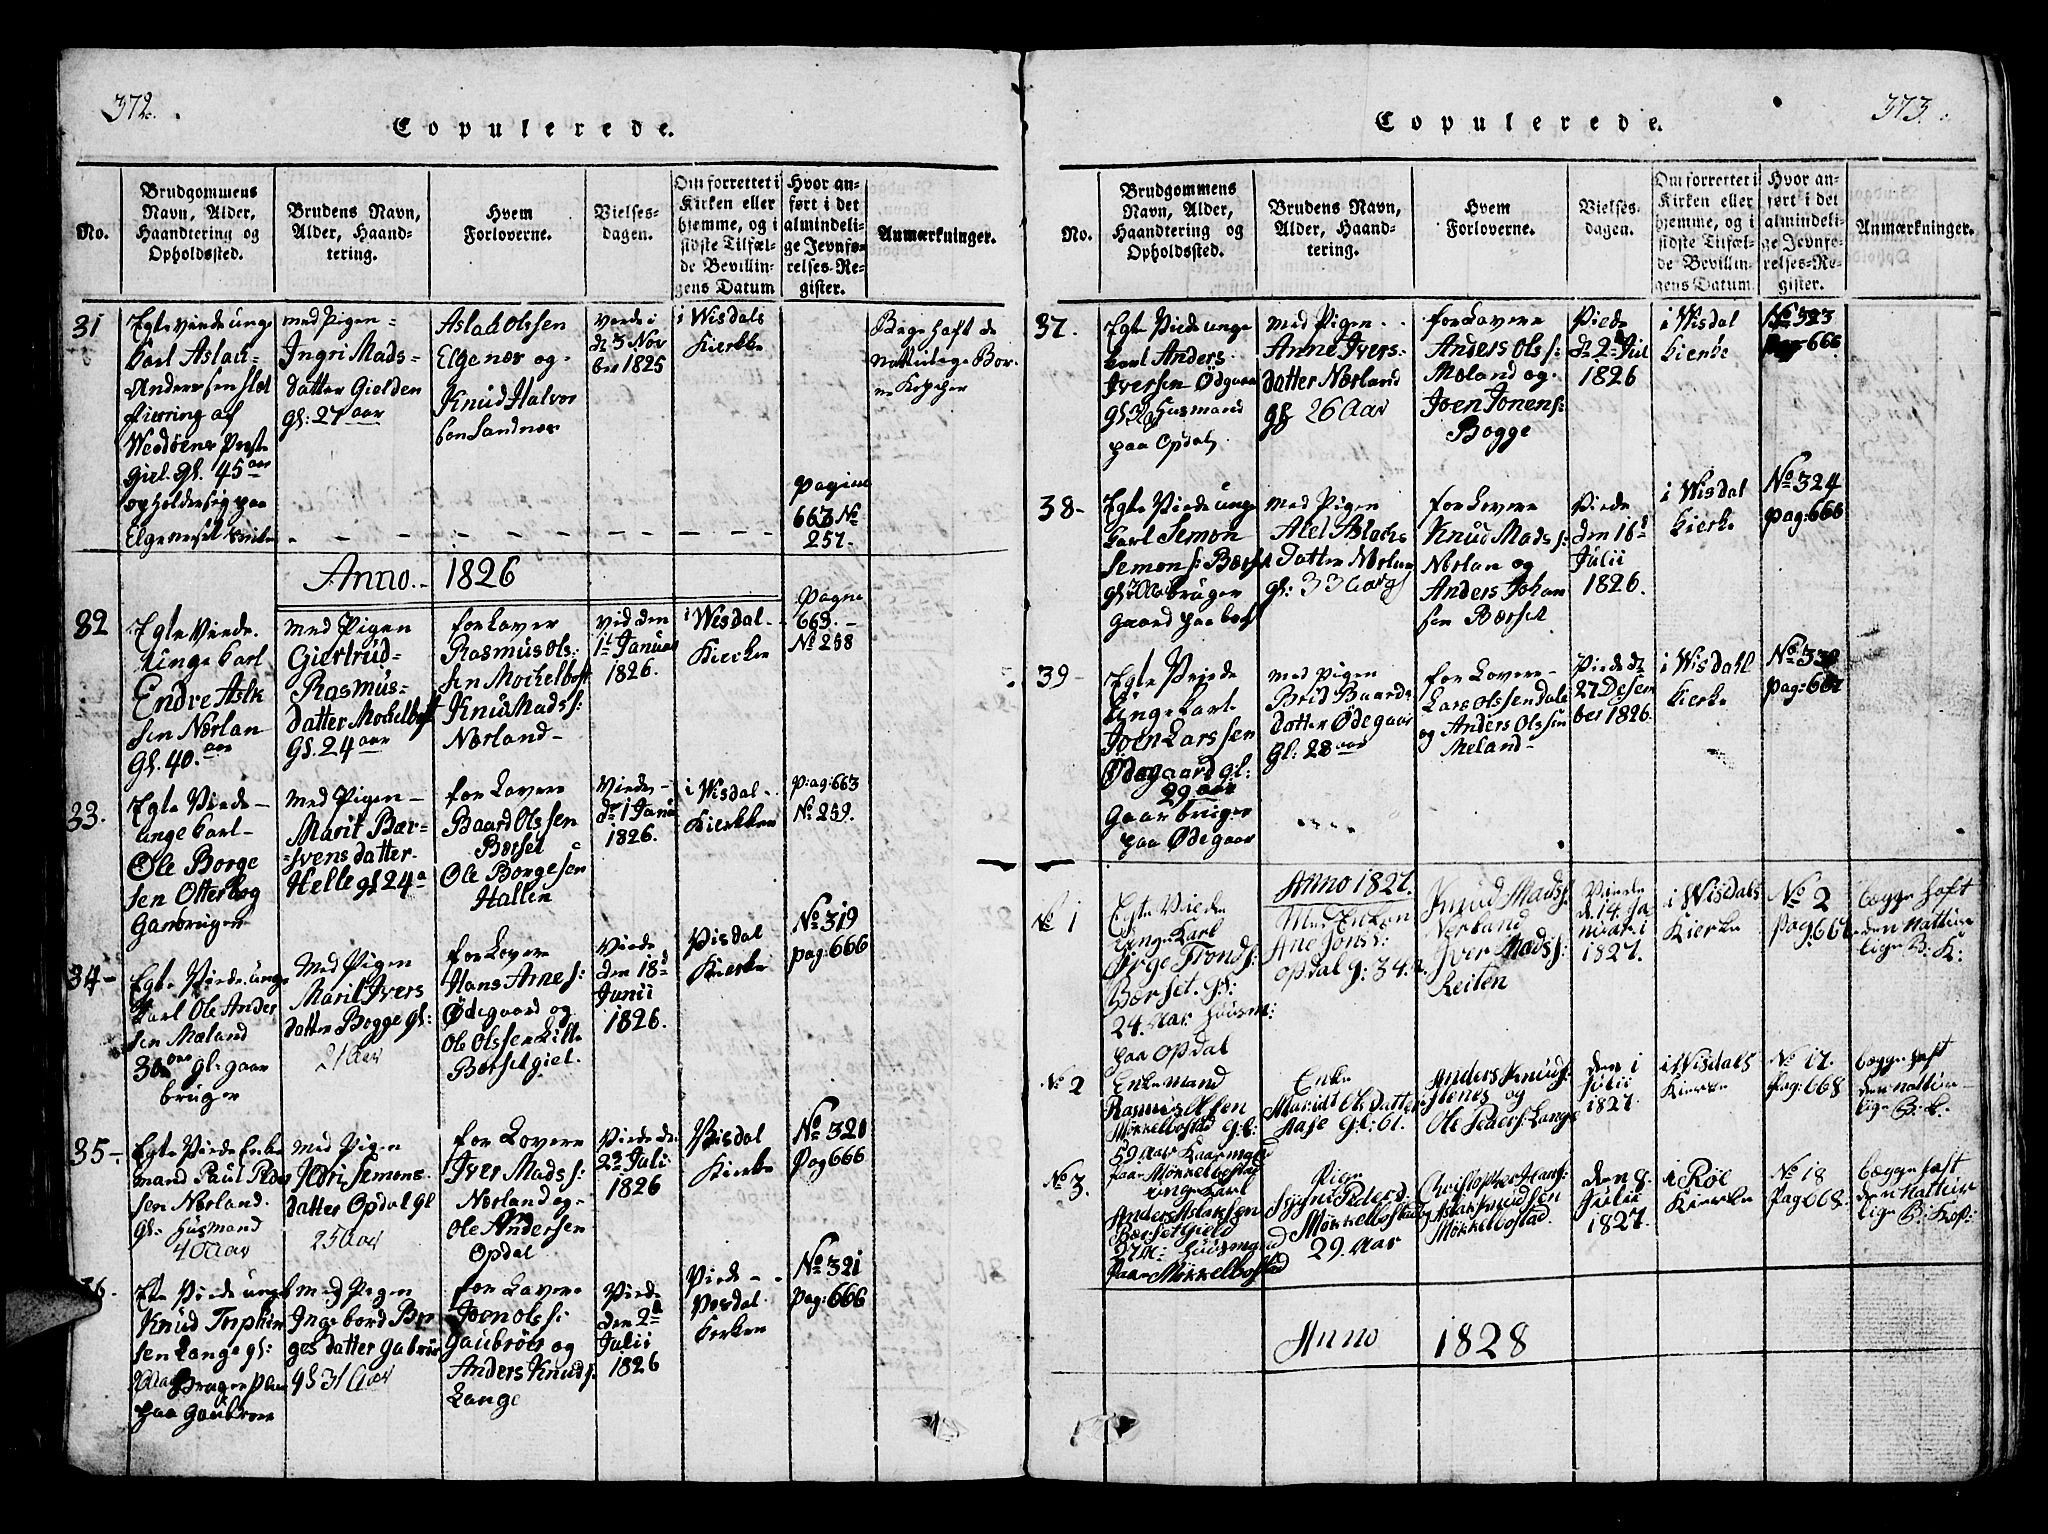 372.
Copulerede.
No.
Brudgommens
Navn, Alder,
Haandtering og
Opholdssted.
Brudens Navn,
Alder, Haand-
tering.
Hvem
Forloverne.
Vielses-
dagen.
Om forrettet i
Kirken eller
hjemme, og i
sidste Tilfæl-
de Bevillin-
gens Datum
Hvor an-
ført i det
almindeli-
ge Jevnfø-
relses-Re-
gister.
Anmærkninger.
31
Egte viede unge
Karl Aslach
Andersen
af
gl. 45 aar
opholder sig paa
med Pigen
Ingri Mads-
datter Gielden
gl: 27 aar
Aslak Olssen
Elgenæs og
Knud Halvor
sen Sandnæs
Viede i
d 3 Nov
ber 1825
i Wisdals
Kierkke
Pagina
663 No
257.
Bege haft de
Natturlige
Anno 1826
Egte Viede
unge Karl
Endre Aslk
sen Nørlan
Gl. 40. aar
med Pigen
Giertrud
Rasmus-
datter Mochelbost
Gl. 24 aar
for Lover
Rasmus Ols-
sen Mochelbost
Knud Mads:
Nørland
vid den
1t Januar
1826.
i Wisdal
Kierken
Pagne
663.
No 258
33.
Egte Viede
unge Karl
Ole Borge
sen Otterbog
Med Pigen
Marit Bær-
svens datter
Helle gl 24 a
for Lovere
Baard Olssen
Børset
Ole Borgesen
Hallen
Viede
d 1 Janu
1826.
i Wisdal
Kierkken
Pag: 663
No 259.
34
Egte Viede unge
Karl Ole Ander
sen Mæland
30 aar gl. gaar
bruger
Med Pigen
Marit Ivers
datter Bogge gl:
21 Aar
for Lovere
Hans Arnes:
Ødegaard og
Ole Olssen Lille
Børset giel.
Viede
den 18d
Junii
1826.
Visdal
Kierke
No 319
pag: 666
35
Egte Viede Enke
mand Paul Peder
sen Nørland
gl: Husmand
40 Aar
med Pigen
Semons
datter Opdal gl
25 Aar
for Lovere
Iver Mads:
Nørland og
Ole Andersen
Opdal
Viede
2 Juli
1826
Visdal
Kierke
No 320
Pag 666
Egte Viede unge
Knud
sen Lange gl:
paa Gaubrøe
med Pigen
Ingebord Bør
ges datter
gl 31 Aar
for Lovere
Joen Ols:
Gaubrøes og
Anders Knuds:
Lange
Viede
den 2d
Julii
1826
Viede
Visdal
Kerken
No 321
Pag: 666
373.
Copulerede.
No.
Brudgommens
Navn, Alder,
Haandtering og
Opholdssted.
Brudens Navn,
Alder, Haand-
tering.
Hvem
Forloverne.
Vielses-
dagen.
Om forrettet i
Kirken eller
hjemme, og i
sidste Tilfæl-
de Bevillin-
gens Datum.
Hvor an-
ført i det
almindeli-
ge Jevnfø-
relses-Re-
gister.
Anmærkninger.
37.
Egte Viede unge
Karl Anders
Iversen Ødgaar
gl Husmand
paa Opdal
med Pigen
Anne Ivers-
datter Nørland
gl 26 Aar
for Lovere
Anders Ols:
Mæland og
Joen Jonens:
Bogge
Viede
d 2 Juli
1826
i Wisdal
Kierke
No 323
pag 666
38
Egte Viede unge
Karl Semon
Semons: Børset
bruger
gaard paa
med Pigen
Aslachs
datter Nørlan
gl: 33 Aar
for Lovere
Knud Mads:
Nørlan og
Anders Johan
sen Børset
Viede
den 16d
Julii
1826.
i Wisdal
Kierke
No 324
pag: 666
39
Egte Viede
unge Karl
Joen Larssen
Ødegaard gl:
29 aar
gaar bruger
paa Ødegaar
med Pigen
Brid Baards
datter Ødegaar
gl: 28 aar
for Lovere
Lars Olssen Dale
og Anders Olssen
Meland
Viede d
27 Desem
ber 1826.
i Wisdall
Kierke
No 330
pag: 667
Anno 1827.
No 1
Egte Viede
Unge Karl
Børge Tronds:
Børset. gl:
24. Aar Huusm:
paa Opdal
Med Enken
Ane Jons:
Opdal gl: 34. a
Knud Mads:
Nørland
Iver Mads:
Reiten
Viede
d. 14. Ja
nuari
1827.
i Wisdals
Kierke
No 2
Pag: 667
begge haft
den Nattur
lige B: K:
No 2
Enkemand
Rasmus Olsen
Mökkelbostad gl:
59 Aar
paa Mökkelbostad
Enke
Maridt Ols Datter
gl: 61.
Anders Knuds:
og
Ole Peders: Lange
den 1
Julii
1827.
i Wisdals
Kierke
No 17.
Pag: 668
begge haft
den nattur-
lige B: K.
No 3.
unge Karl
Anders Aslaksen
Børset Gield
27 A: Huusmand
paa Mökkelbostad
Pige
Signi Peders d:
Mökkelbostad
29. Aar
Christopher Hans:
Aslak Knudsen
Mökkelbostad.
den 8.
Julii
1827.
i Röe
Kierke
No 18
Pag: 668.
begge haft
den Nattur
lige B: Kop:
Anno 1828